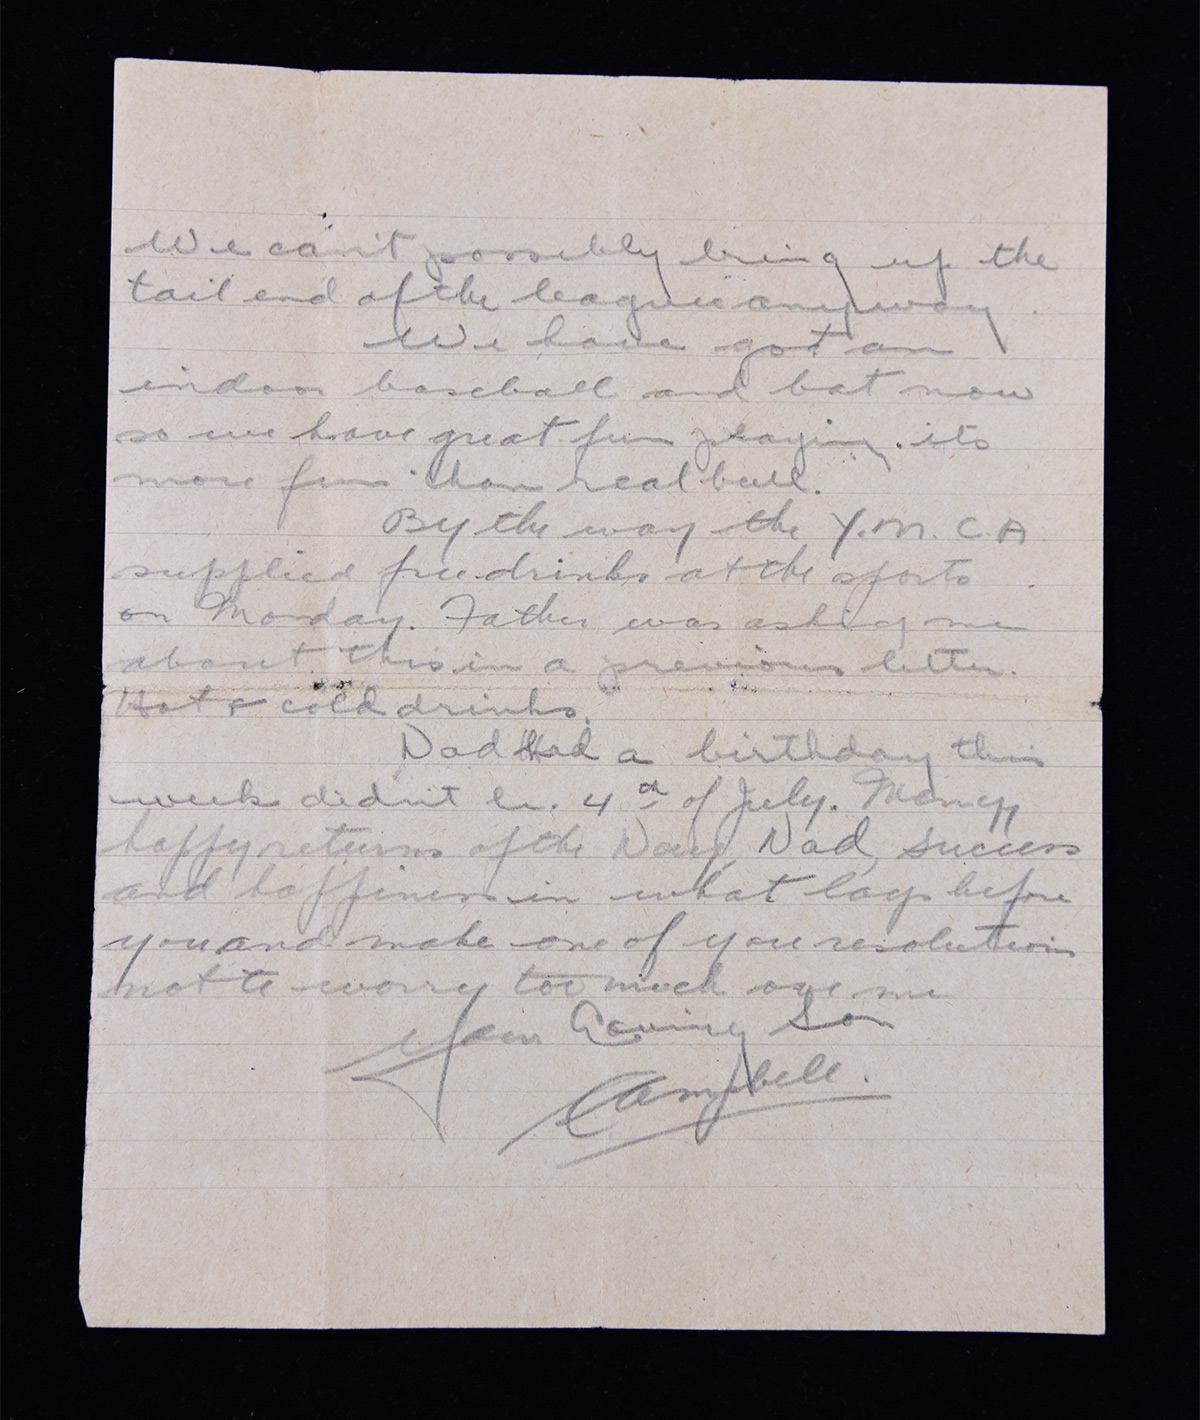 We can't possibly bring up the
tail end of the league anyway.
We have got an
indoor baseball and bat now
so we have great fun playing. its
more fun than real ball.
By the way the Y.M.C.A
supplied free drinks at the sports
on Monday. Father was asking me
about this in a previous letter.
Hot & cold drinks.
Dad Had a birthday this
week didn't he. 4th of July. Many
happy returns of the Day, Dad, success
and happiness in what lays before
you and make one of your resolutions
not to worry too much over me
Your Loving Son
Campbell.